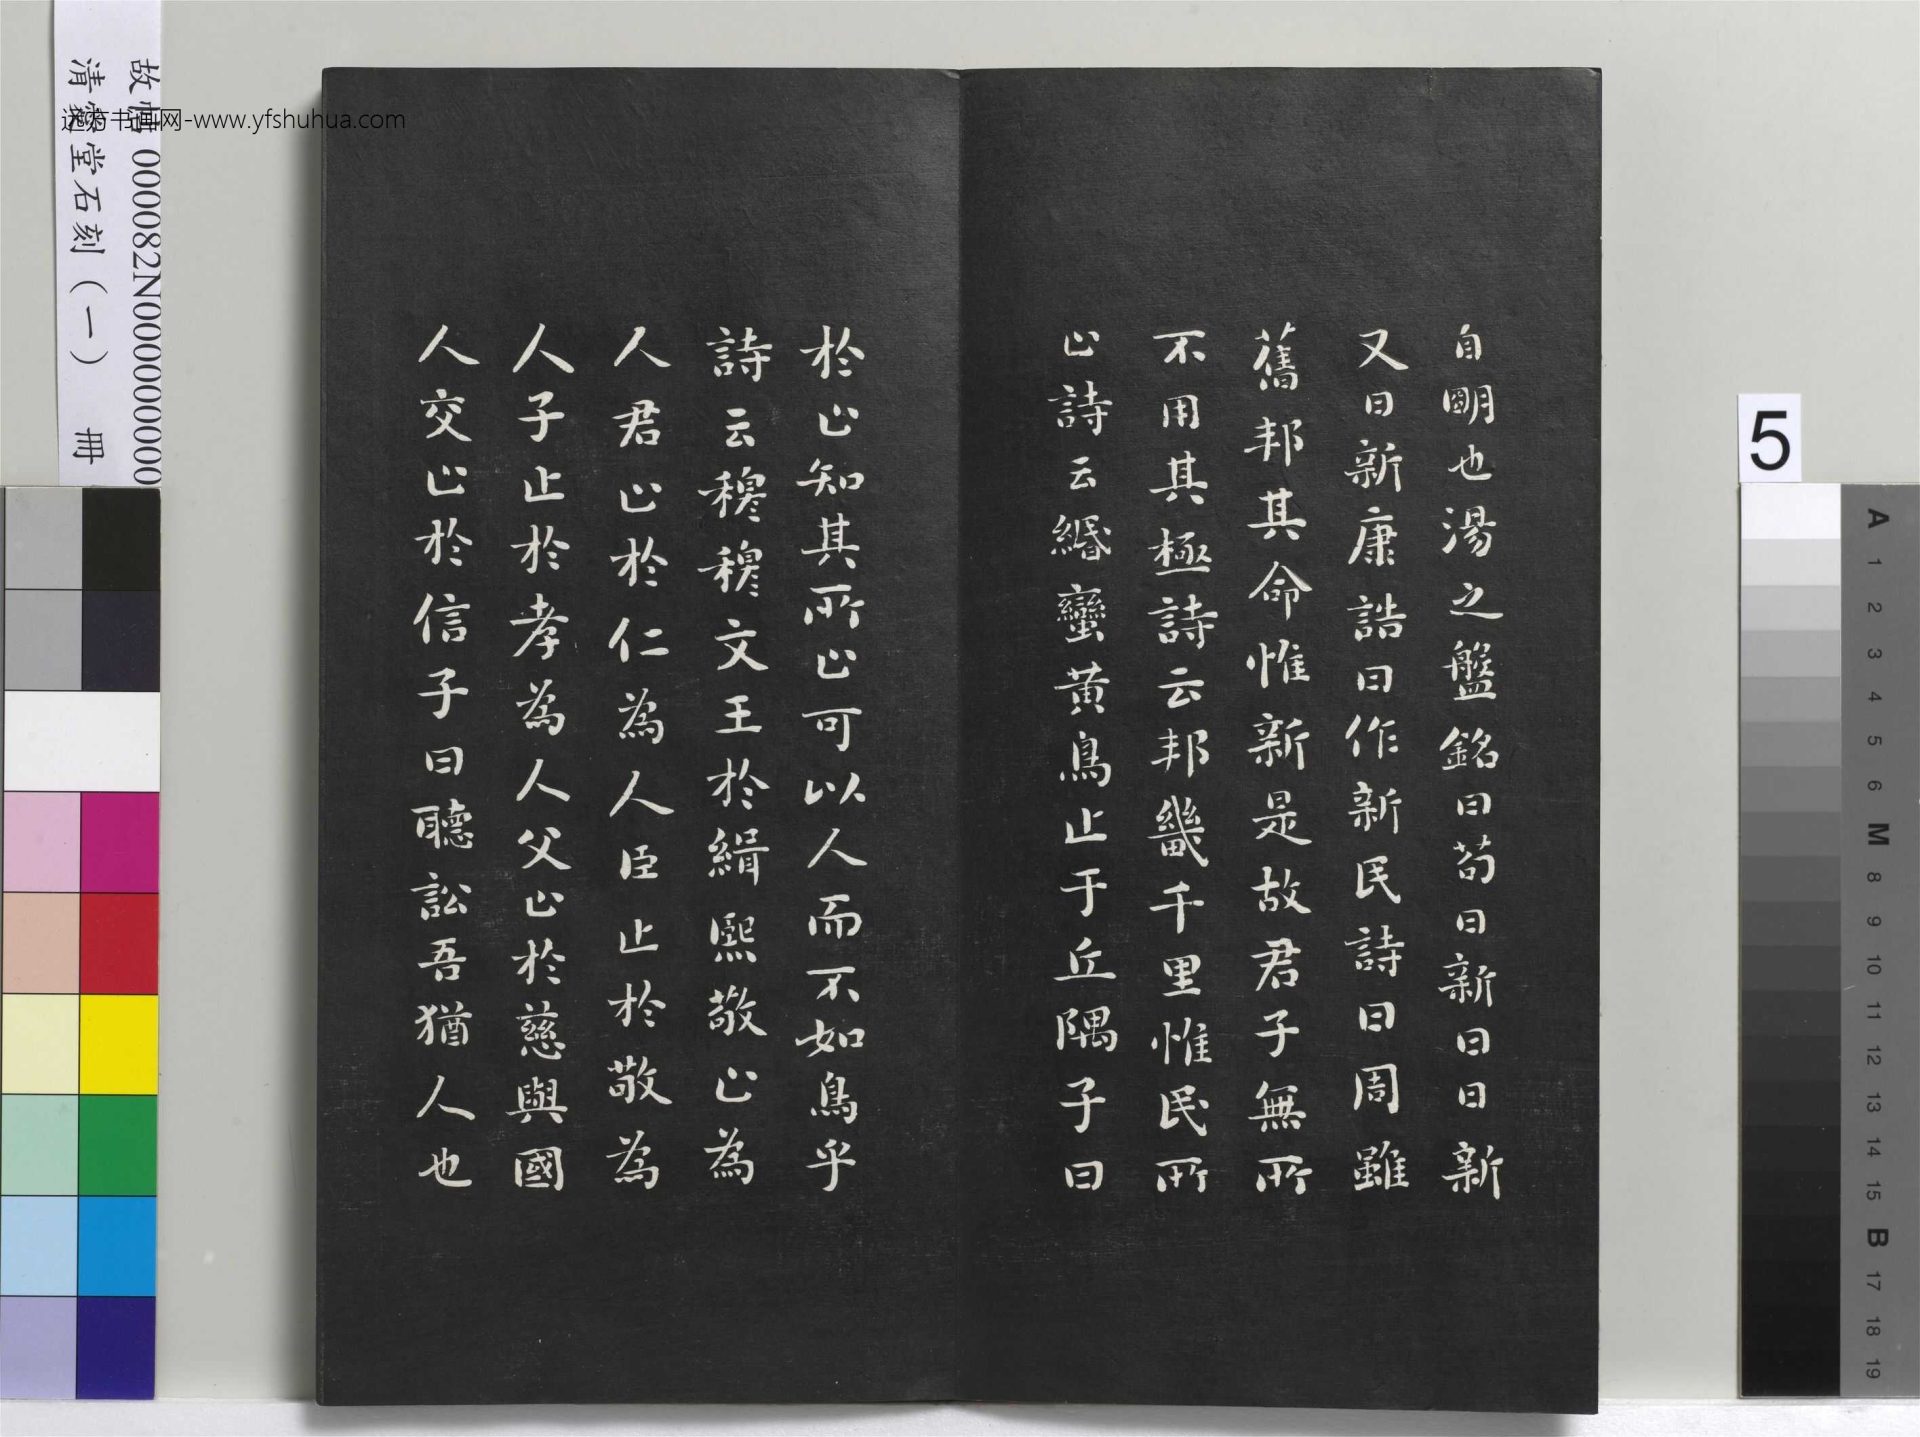 自明也湯之盤銘曰苟日新日日新
又日新康誥曰作新民詩曰周雖
舊邦其命惟新是故君子無所
不用其極詩云邦畿千里惟民所
止詩云緡蠻黃鳥止于丘隅子曰
於止知其所止可以人而不如鳥乎
詩云穆穆文王於緝熙敬止為
人君止於仁為人臣止於敬為
人子止於孝為人父止於慈與國
人交止於信子曰聽訟吾猶人也
故帖000082N000000000
清 堂石刻(一) 冊
书画网-www.yfshuhua.com
5
A
1
2
3
4
5
6
M
8
9
10
11
12
13
14
15
B
17
18
19